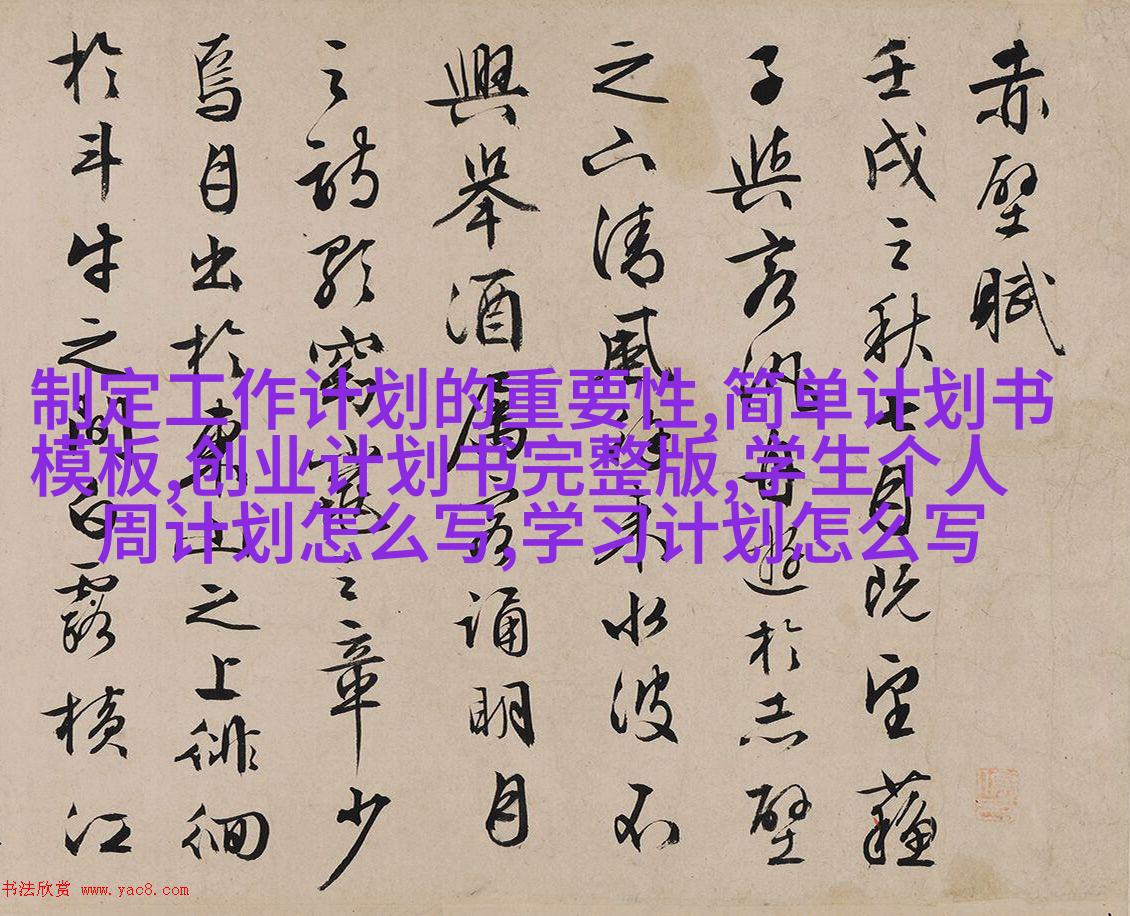 赤壁賦
壬戌之秋七月既望蘇
子與客泛舟遊於赤壁
之下清風徐來水波不
興舉酒屬客誦明月
之詩歌窈窕之章少
焉月出於東山之上徘徊
於斗牛之間白露橫江
制定工作计划的重要性,简单计划书
模板,创业计划书完整版,学生个人
周计划怎么写,学习计划怎么写
书法欣赏 www.yac8.com